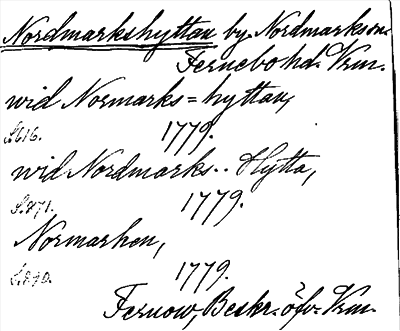 Nordmarkshyttan by Nordmarks sn.
Fernebo hd. Vrm.
wid Normarks=hyttan,
S. 616. 1779.
wid Nordmarks.. Hytta,
S. 471. 1779.
Normarken,
S. 290. 1779.
Fernow, Beskr. öfv. Vrm.